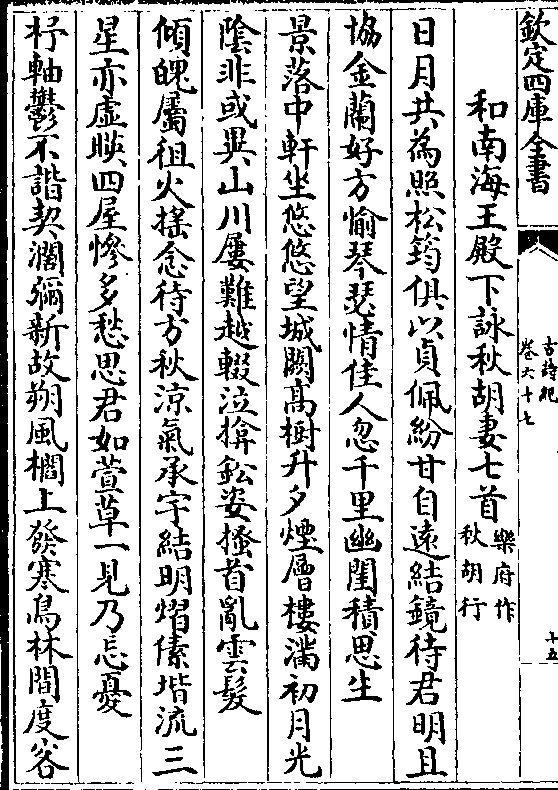 欽定四庫全書
古詩紀
卷六十七
十五
和南海王殿下詠秋胡妻七首樂府作秋胡行
日月共為照松筠俱以貞佩紛甘自遠結鏡待君明且
協金蘭好方愉琴瑟情佳人忽千里幽閨積思生
景落中軒坐悠悠望城闕高樹升夕煙層樓滿初月光
陰非或異山川屢難越輟泣揜鉛姿搔首亂雲髮
傾魄屬徂火搖念待方秋涼氣承宇結明熠傃堦流三
星亦虛暎四屋慘多愁思君如萱草一見乃忘憂
杼軸鬱不諧契濶彌新故朔風櫩上發寒鳥林間度客